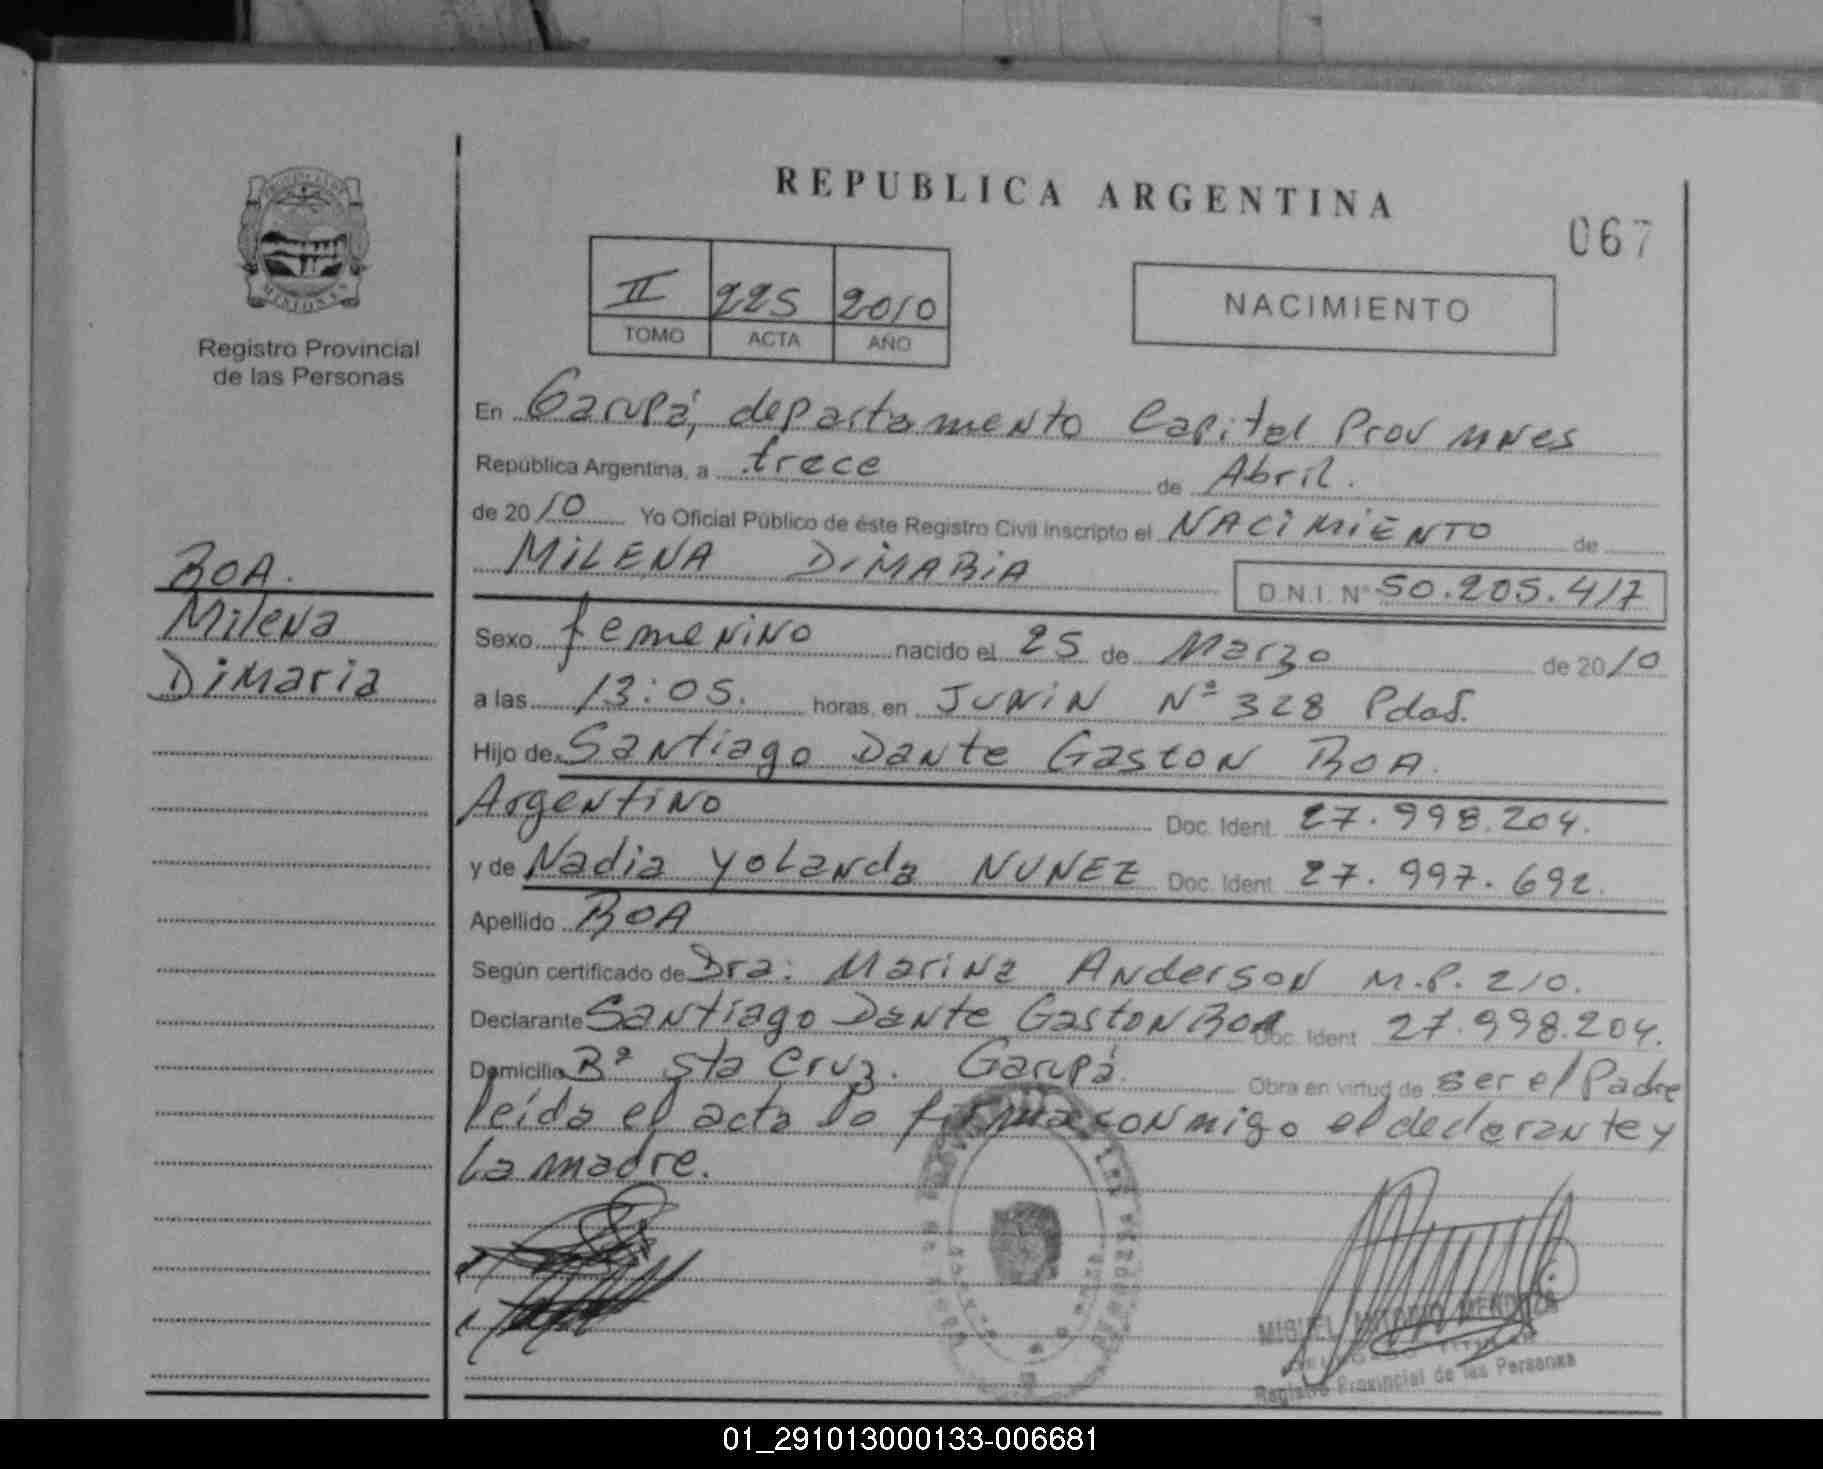 REPUBLICA ARGENTINA
067
PROVINCIA DE
MISIONES
Registro Provincial
de las Personas
II 225 2010
TOMO ACTA AÑO
NACIMIENTO
En Garupá, departamento Capital Prov mnes
República Argentina, a trece de Abril.
de 2010 Yo Oficial Público de éste Registro Civil inscripto el NACIMIENTO de
MILENA DIMARIA D.N.I. Nº 50.205.417
BOA.
Milena
Dimaria
Sexo femenino nacido el 25 de Marzo de 2010
a las 13:05. horas, en JUNIN Nº 328 Pdas.
Hijo de Santiago Dante Gaston BOA.
Argentino Doc. Ident. 27.998.204.
y de Nadia Yolanda NUNEZ Doc. Ident. 27.997.692.
Apellido BOA
Según certificado de Dra: Marina Anderson M.P. 210.
Declarante Santiago Dante Gaston BOA Doc. Ident 27.998.204.
Domicilio Bº Sta Cruz. Garupá. Obra en virtud de ser el Padre
leída el acta lo firma conmigo el declarante y
la madre.
MIGUEL ANTONIO MENDOZA
Registro Provincial de las Personas
01_291013000133-006681